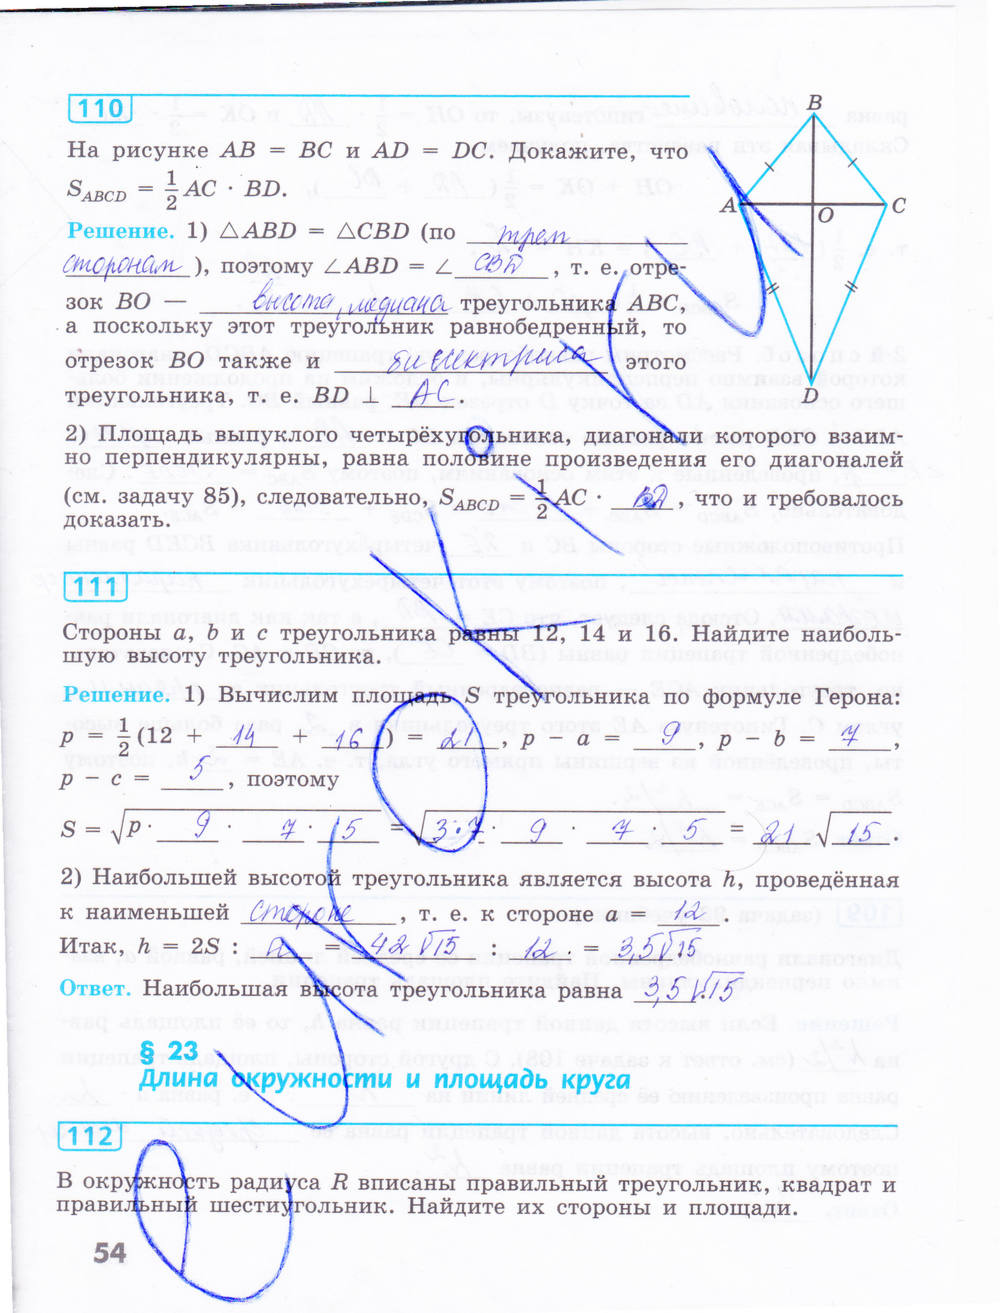 110
На рисунке AB = BC и AD = DC. Докажите, что
S_ABCD = 1/2 AC · BD.
Решение. 1) △ABD = △CBD (по трем
сторонам), поэтому ∠ABD = ∠ CBD, т. е. отре-
зок BO — высота, медиана треугольника ABC,
а поскольку этот треугольник равнобедренный, то
отрезок BO также и биссектриса этого
треугольника, т. е. BD ⊥ AC.
B
A
O
C
D
2) Площадь выпуклого четырёхугольника, диагонали которого взаим-
но перпендикулярны, равна половине произведения его диагоналей
(см. задачу 85), следовательно, S_ABCD = 1/2 AC · BD, что и требовалось
доказать.
111
Стороны a, b и c треугольника равны 12, 14 и 16. Найдите наиболь-
шую высоту треугольника.
Решение. 1) Вычислим площадь S треугольника по формуле Герона:
p = 1/2 (12 + 14 + 16) = 21, p − a = 9, p − b = 7,
p − c = 5, поэтому
S = √(p · 9 · 7 · 5) = √(3·7 · 9 · 7 · 5) = 21 √15.
2) Наибольшей высотой треугольника является высота h, проведённая
к наименьшей стороне, т. е. к стороне a = 12.
Итак, h = 2S : a = 42√15 : 12 = 3,5√15.
Ответ. Наибольшая высота треугольника равна 3,5√15.
§ 23
Длина окружности и площадь круга
112
В окружность радиуса R вписаны правильный треугольник, квадрат и
правильный шестиугольник. Найдите их стороны и площади.
54